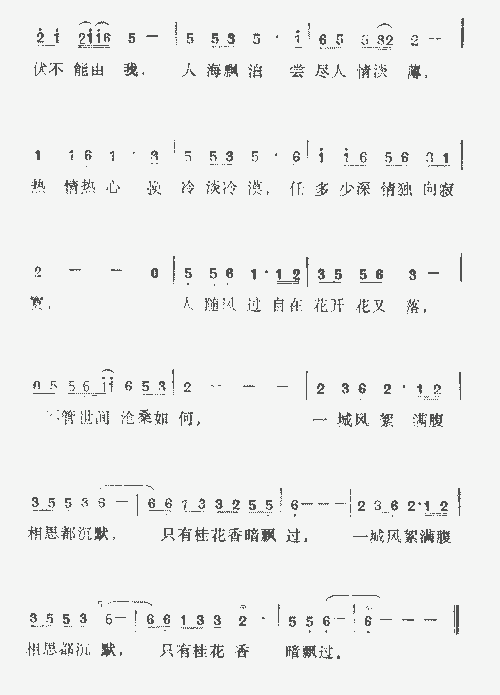 2 1 2116 5 — | 5 53 5 · 1 | 65 532 2 — — |
伏不能由我, 人海飘泊 尝尽人情淡薄,
1 16 1 · 3 | 5 53 5 · 6 | 1 16 56 31 |
热情热心 换 冷淡冷漠, 任多少深情独向寂
2 — — 0 | 5 56 1 · 12 | 35 56 3 — |
寞, 人随风 过 自在 花开 花又 落,
05 561 6 53 | 2 — — — | 2 36 2 · 12 |
不管世间沧桑如何, 一城风絮 满腹
3553 6 — | 66 13 32 55 | 6 — — — | 236 2 · 12 |
相思都沉默, 只有桂花香暗飘过, 一城风絮满腹
3553 6 — | 66 133 2 · | 5 5 6 — | 6 — — ‖
相思都沉默, 只有桂花香 暗飘过。